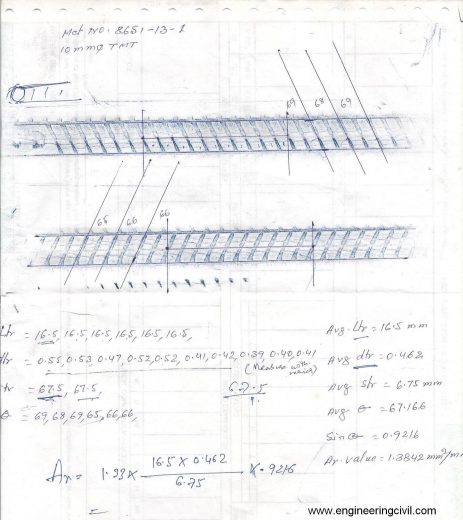 Mat NO. 8651-13-2
10 mmφ TMT
69 68 69
65 66 66
ltr = 16.5, 16.5, 16.5, 16.5, 16.5, 16.5,
dtr = 0.55, 0.53, 0.47, 0.52, 0.52, 0.41, 0.42, 0.39, 0.40, 0.41
(Measure with
= 67.5, 67.5,
67.5
θ = 69, 68, 69, 65, 66, 66,
Avg. ltr = 16.5 mm
Avg dtr = 0.462
Avg Str = 6.75 mm
Avg θ = 67.166
Sin θ = 0.9216
Ar. value = 1.3842 mm²/m
Ar = 1.33 x 16.5 x 0.462 x .9216
6.75
www.engineeringcivil.com